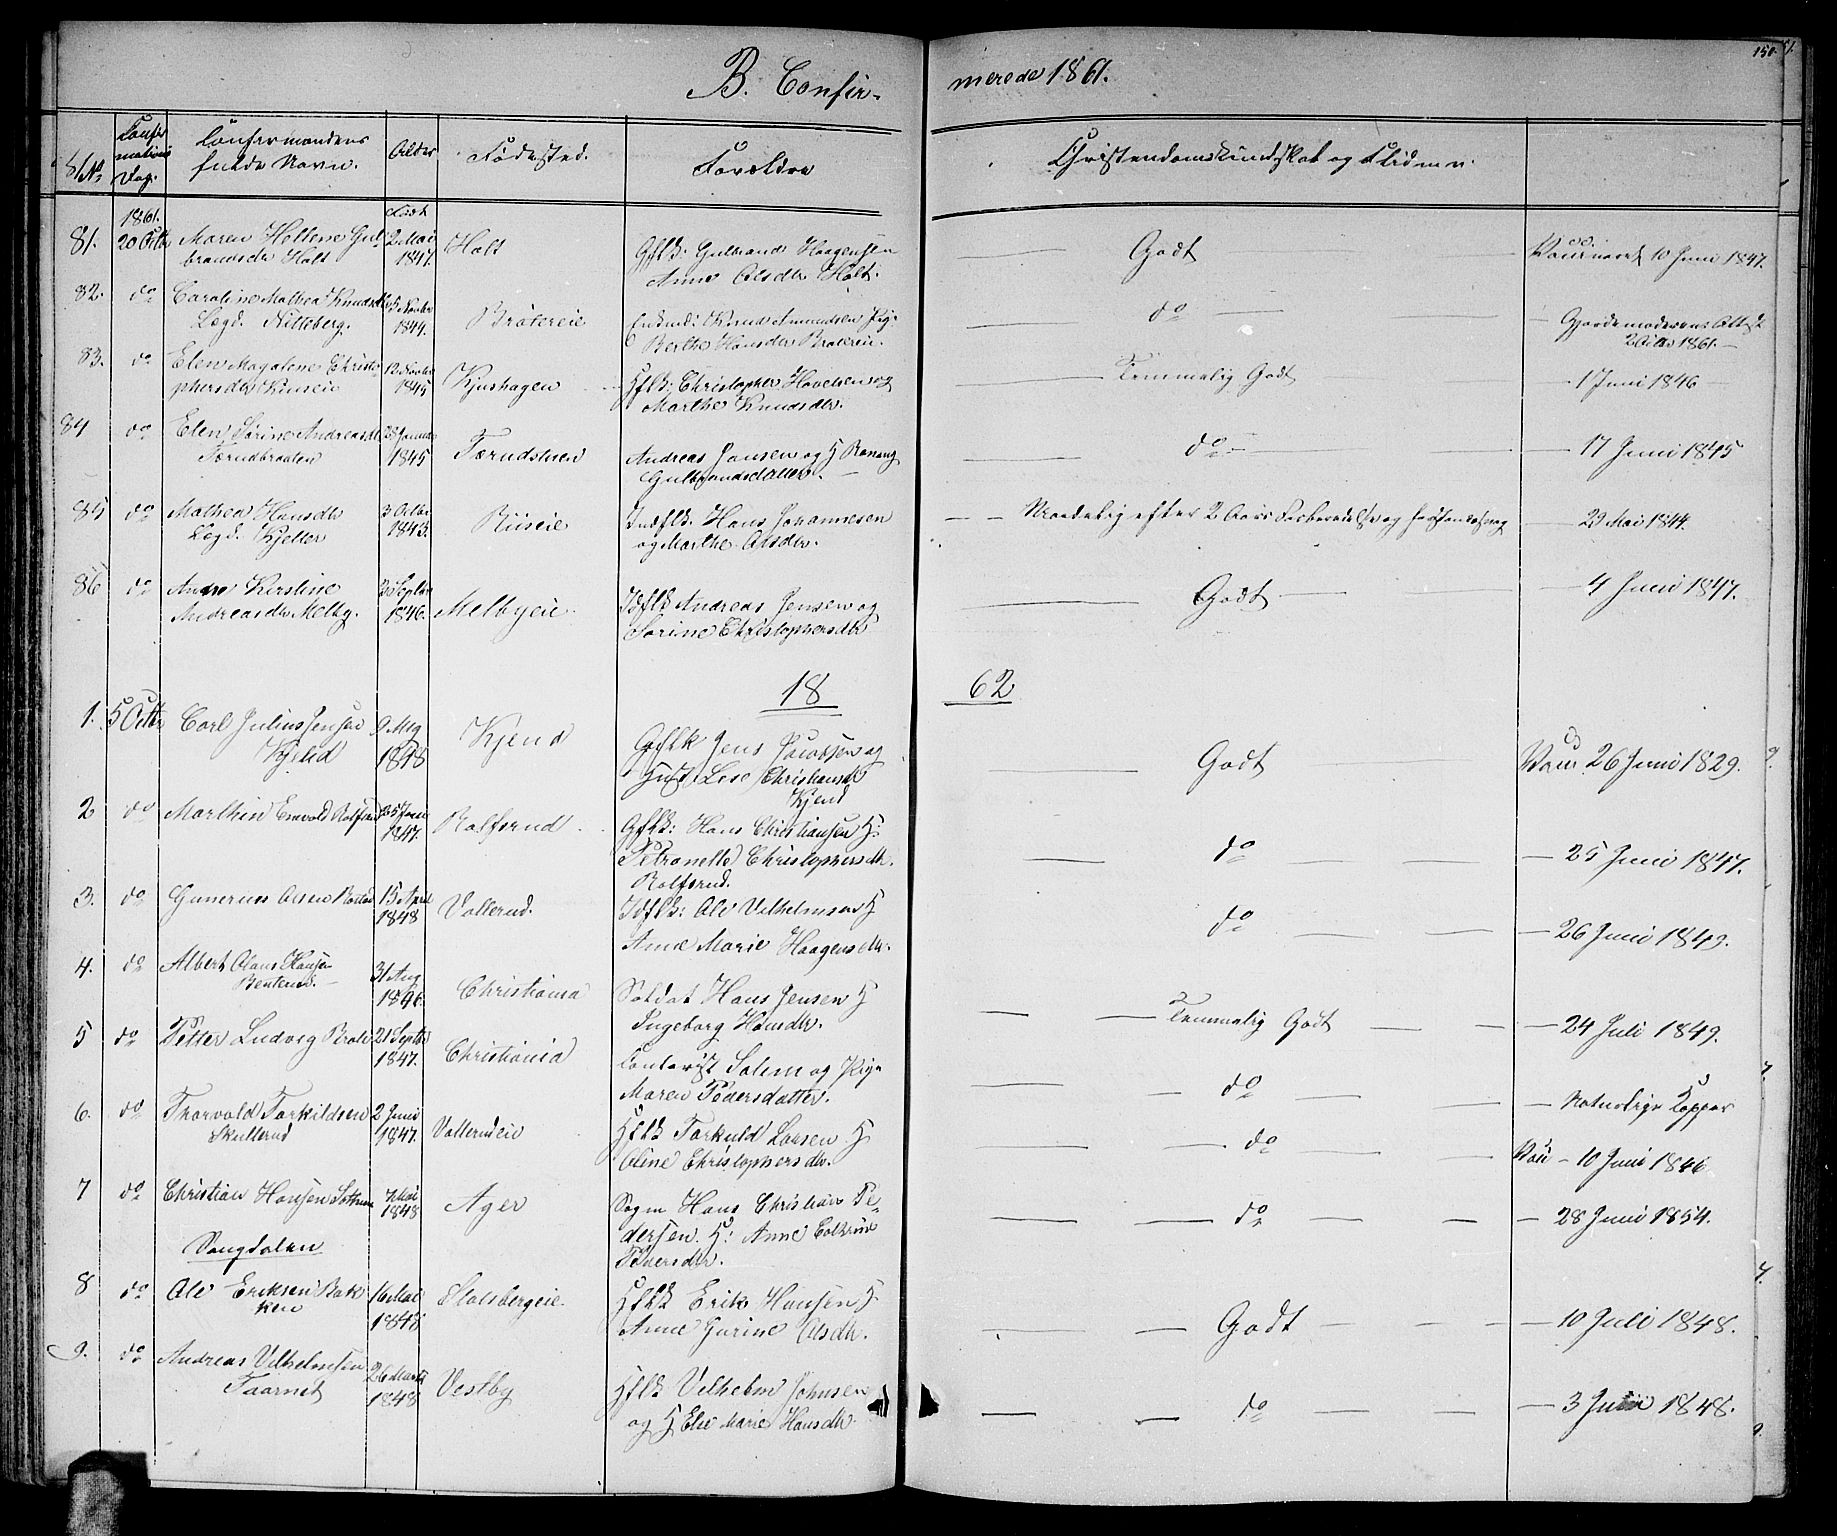 B. Confir-
merede 1861.
150.
No
Confir
mations
Dag.
Confirmandens
fulde Navn.
Alder
Fødested.
Forældre
Christendomskundskab og Flid m. v.
1861.
Født
81. 20 Octbr Maren Hellene Gul
brandsdr Holt
2 Mai
1847.
Holt
Gflk: Gulbrand Haagensen
Anne Olsdr Holt.
Godt
Vaccineret 10 Juni 1847.
82. do Caroline Mathea Knudsdtr
Lægd. Nitteberg.
1844.
Bråtereie
Knud Amundsen Pige
Berthe Hansdr Bråtereie.
do
Gjordemoderens Attest
2 Octbr 1861.
83. do Elen Magdlene Christo
phersdr Kruseie
1845
Kjushagen
Hflk: Christopher Hovelsen og
Marthe Knudsdr.
Temmelig Godt
1 Juni 1846
84 do Elen Sørine Andreasdr
Tærudbraaten
28 Januar
1845
Tærudstuen
Andreas Jansen og H Ranaug
Gulbrandsdatter.
do
17 Juni 1845
85 do Mathea Hansdr
Lægd. Kjeller
3 Octbr
1843.
Riiseie
Indflk. Hans Johannesen
og Marthe Olsdr.
Maadelig efter 2 Aars Forberedelse og
23 Mai 1844.
86 do Kirstine
Andreasdr Melby.
1846.
Melbyeie.
Idflk Andreas Jensen og
Sørine Christophersdr
Godt
4 Juni 1847.
18
62
1. 5 Octbr Carl Julius Jensen
Kjend
9 Mai
1848
Kjend
Gflk Jens Jacobsen og
Hust. Lise Christiansdr
Kjend
Godt
Vacc 26 Juni 1829.
2 do Marthin Enevold Rolfsrud
25 Juni
1847.
Rolfsrud.
Gflk: Hans Christiansen H:
Petronelle Christophersdr.
Rolfsrud.
do
25 Juni 1847.
3. do Gunerius Olsen
15 April
1848
Vallerud.
Idflk: Ole Vilhelmsen H
Anne Marie Haagensdr.
do
26 Juni 1849.
4. do Albert Olaus Hansen
Benterud.
31 Aug
1846.
Christiania
Soldat Hans Jensen H
Ingeborg Hansdr.
Temmelig Godt
24 Juli 1849.
5 do Petter Ludvig
21 Septbr
1847.
Christiania
Contorist Solem og Pige
Maren Pedersdatter.
do
Naturlige Kopper
6. do Thorvald Torkildsen
Skullerud
2 Juni
1847.
Vallerudeie
Hflk Torkuld Larsen H
Oline Christophersdr.
do
Vacc 10 Juni 1846
7 do Christian Hansen
Mai
1848
Ager
Hans Christian Pe-
dersen. H: Anne
Pedersdr.
do
28 Juni 1854.
Sougdalen
8 do Ole Eriksen Bak
ken
16 Mai
1848
Slatsbergeie.
Hflk Erik Hansen H.
Anne Gurine Olsdr.
Godt
10 Juli 1848.
9. do Andreas Vilhelmsen
Taarnet
26 Marts
1848
Vestby
Hflk Vilhelm Johnsen
og H Elie Marie Hansdr.
do
3 Juni 1848.